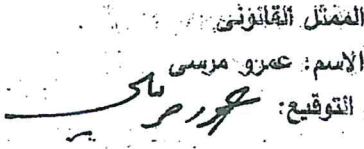 الممثل القانونى
الاسم: عمرو مرسى
التوقيع: